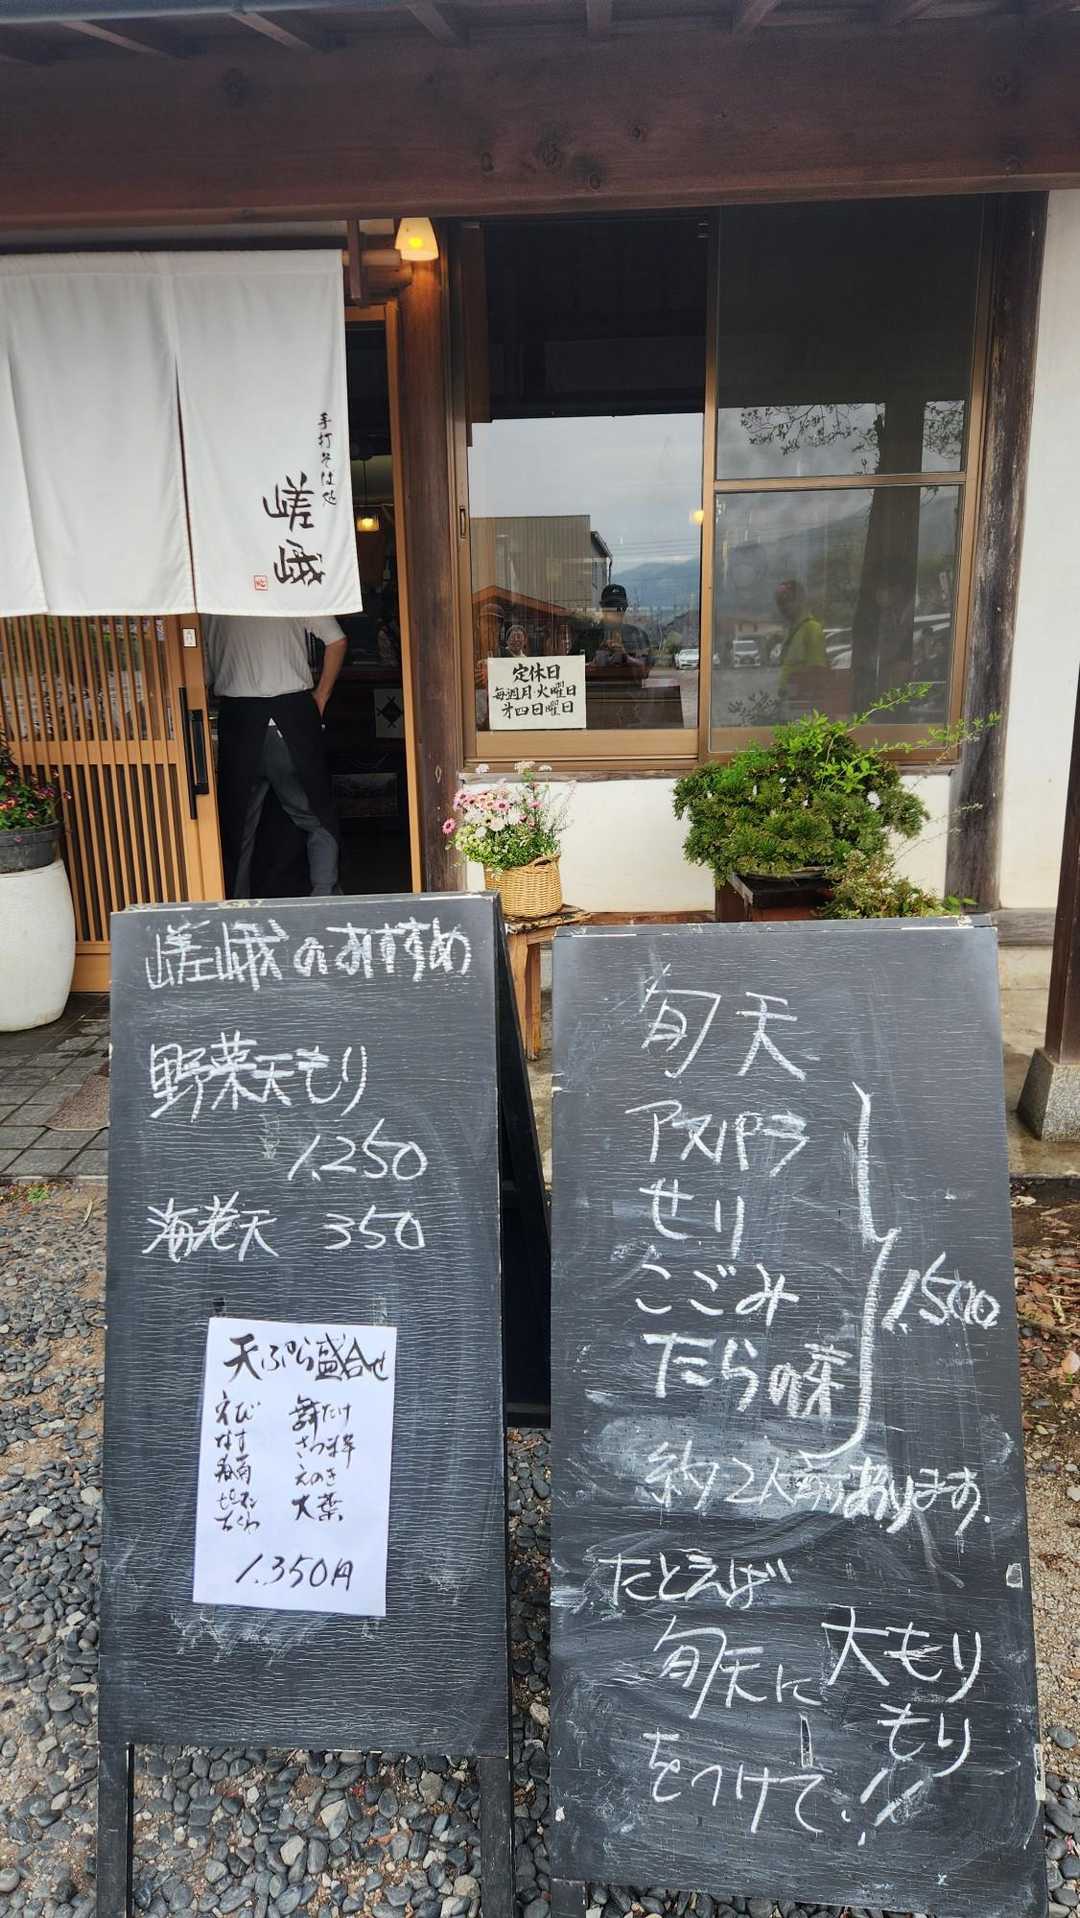 手打そば処
嵯峨
定休日
毎週月・火曜日
第四日曜日
嵯峨のおすすめ
野菜天もり
1,250
海老天 350
天ぷら盛合せ
えび 舞たけ
なす さつま芋
南 えのき
ピーマン 大葉
ちくわ
1.350円
旬天
アスパラ
せり
こごみ
たらの芽
1,500
約2人前あります。
たとえば
旬天に大もり
もり
をつけて!!